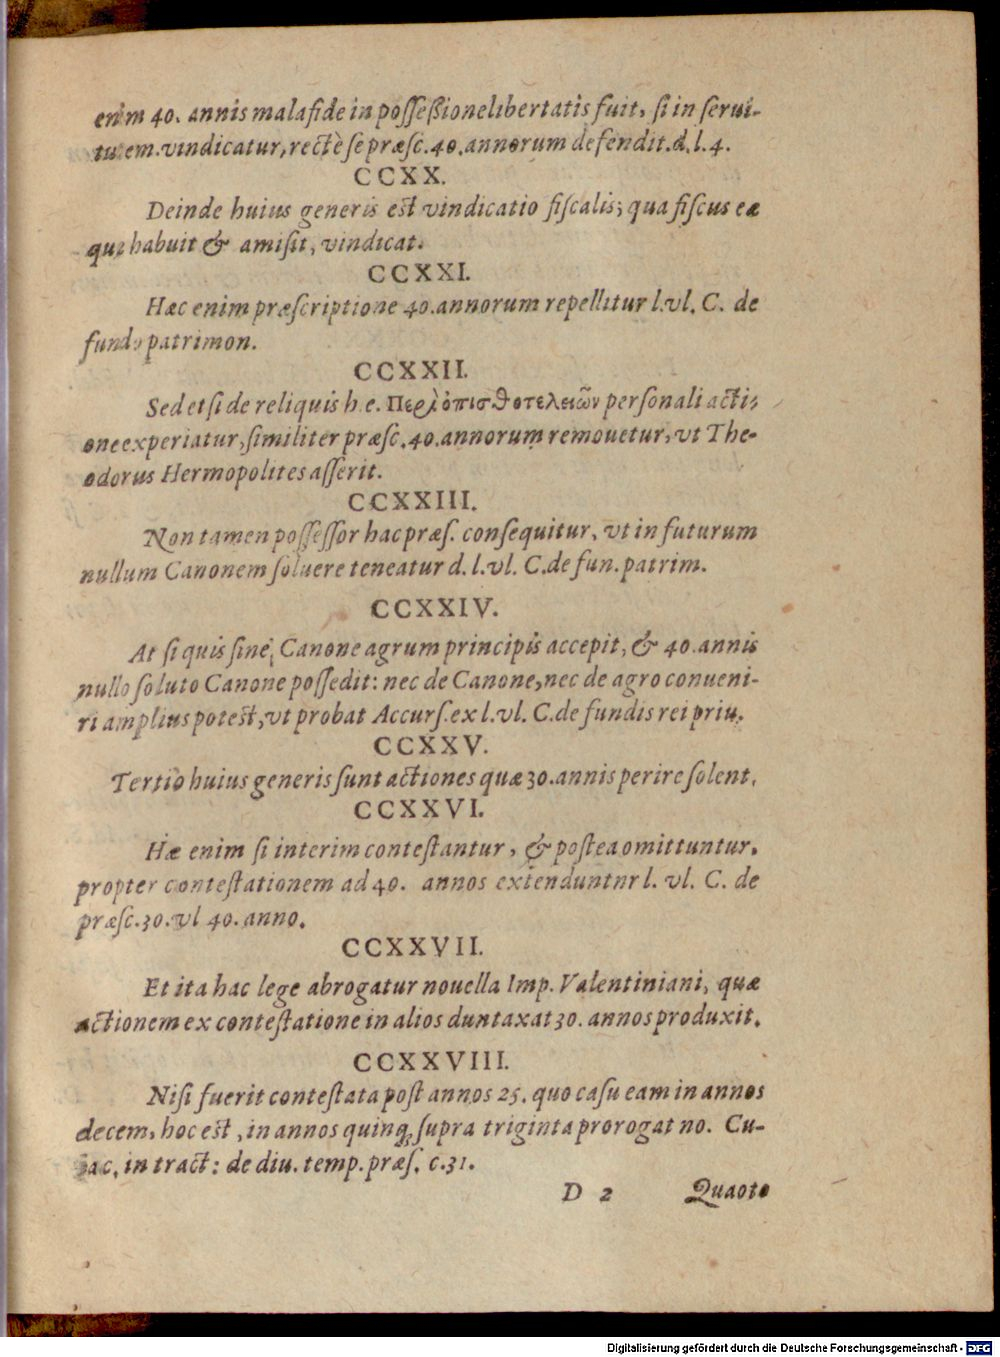 enim 40. annis malafide in poſſeßione libertatis fuit, ſi in ſerui-
tutem. vindicatur, rectè ſe præſc. 40. annorum defendit. d. l. 4.
CCXX.
Deinde huius generis est vindicatio fiſcalis; qua fiſcus eæ
quæ habuit & amiſit, vindicat.
CCXXI.
Hæc enim præſcriptione 40. annorum repellitur l. vl. C. de
fundo patrimon.
CCXXII.
Sed etſi de reliquis h. e. Περὶ ὀπισθοτελειῶν perſonali acti-
one experiatur, ſimiliter præſc. 40. annorum remouetur, vt The-
odorus Hermopolites aſſerit.
CCXXIII.
Non tamen poſſeſſor hac præſ. conſequitur, vt in futurum
nullum Canonem ſoluere teneatur d. l. vl. C. de fun. patrim.
CCXXIV.
At ſi quis ſine Canone agrum principis accepit, & 40. annis
nullo ſoluto Canone poſſedit: nec de Canone, nec de agro conueni-
ri amplius potest, vt probat Accurſ. ex l. vl. C. de fundis rei priu.
CCXXV.
Tertio huius generis ſunt actiones quæ 30. annis perire ſolent.
CCXXVI.
Hæ enim ſi interim conteſtantur, & poſtea omittuntur.
propter conteſtationem ad 40. annos extenduntnr l. vl. C. de
præſc. 30. vl 40. anno.
CCXXVII.
Et ita hac lege abrogatur nouella Imp. Valentiniani, quæ
actionem ex conteſtatione in alios duntaxat 30. annos produxit.
CCXXVIII.
Niſi fuerit conteſtata poſt annos 25. quo caſu eam in annos
decem, hoc est, in annos quinq; ſupra triginta prorogat no. Cu-
iac, in tract: de diu. temp. præſ. c. 31.
D 2 Quaoto
Digitalisierung gefördert durch die Deutsche Forschungsgemeinschaft - DFG